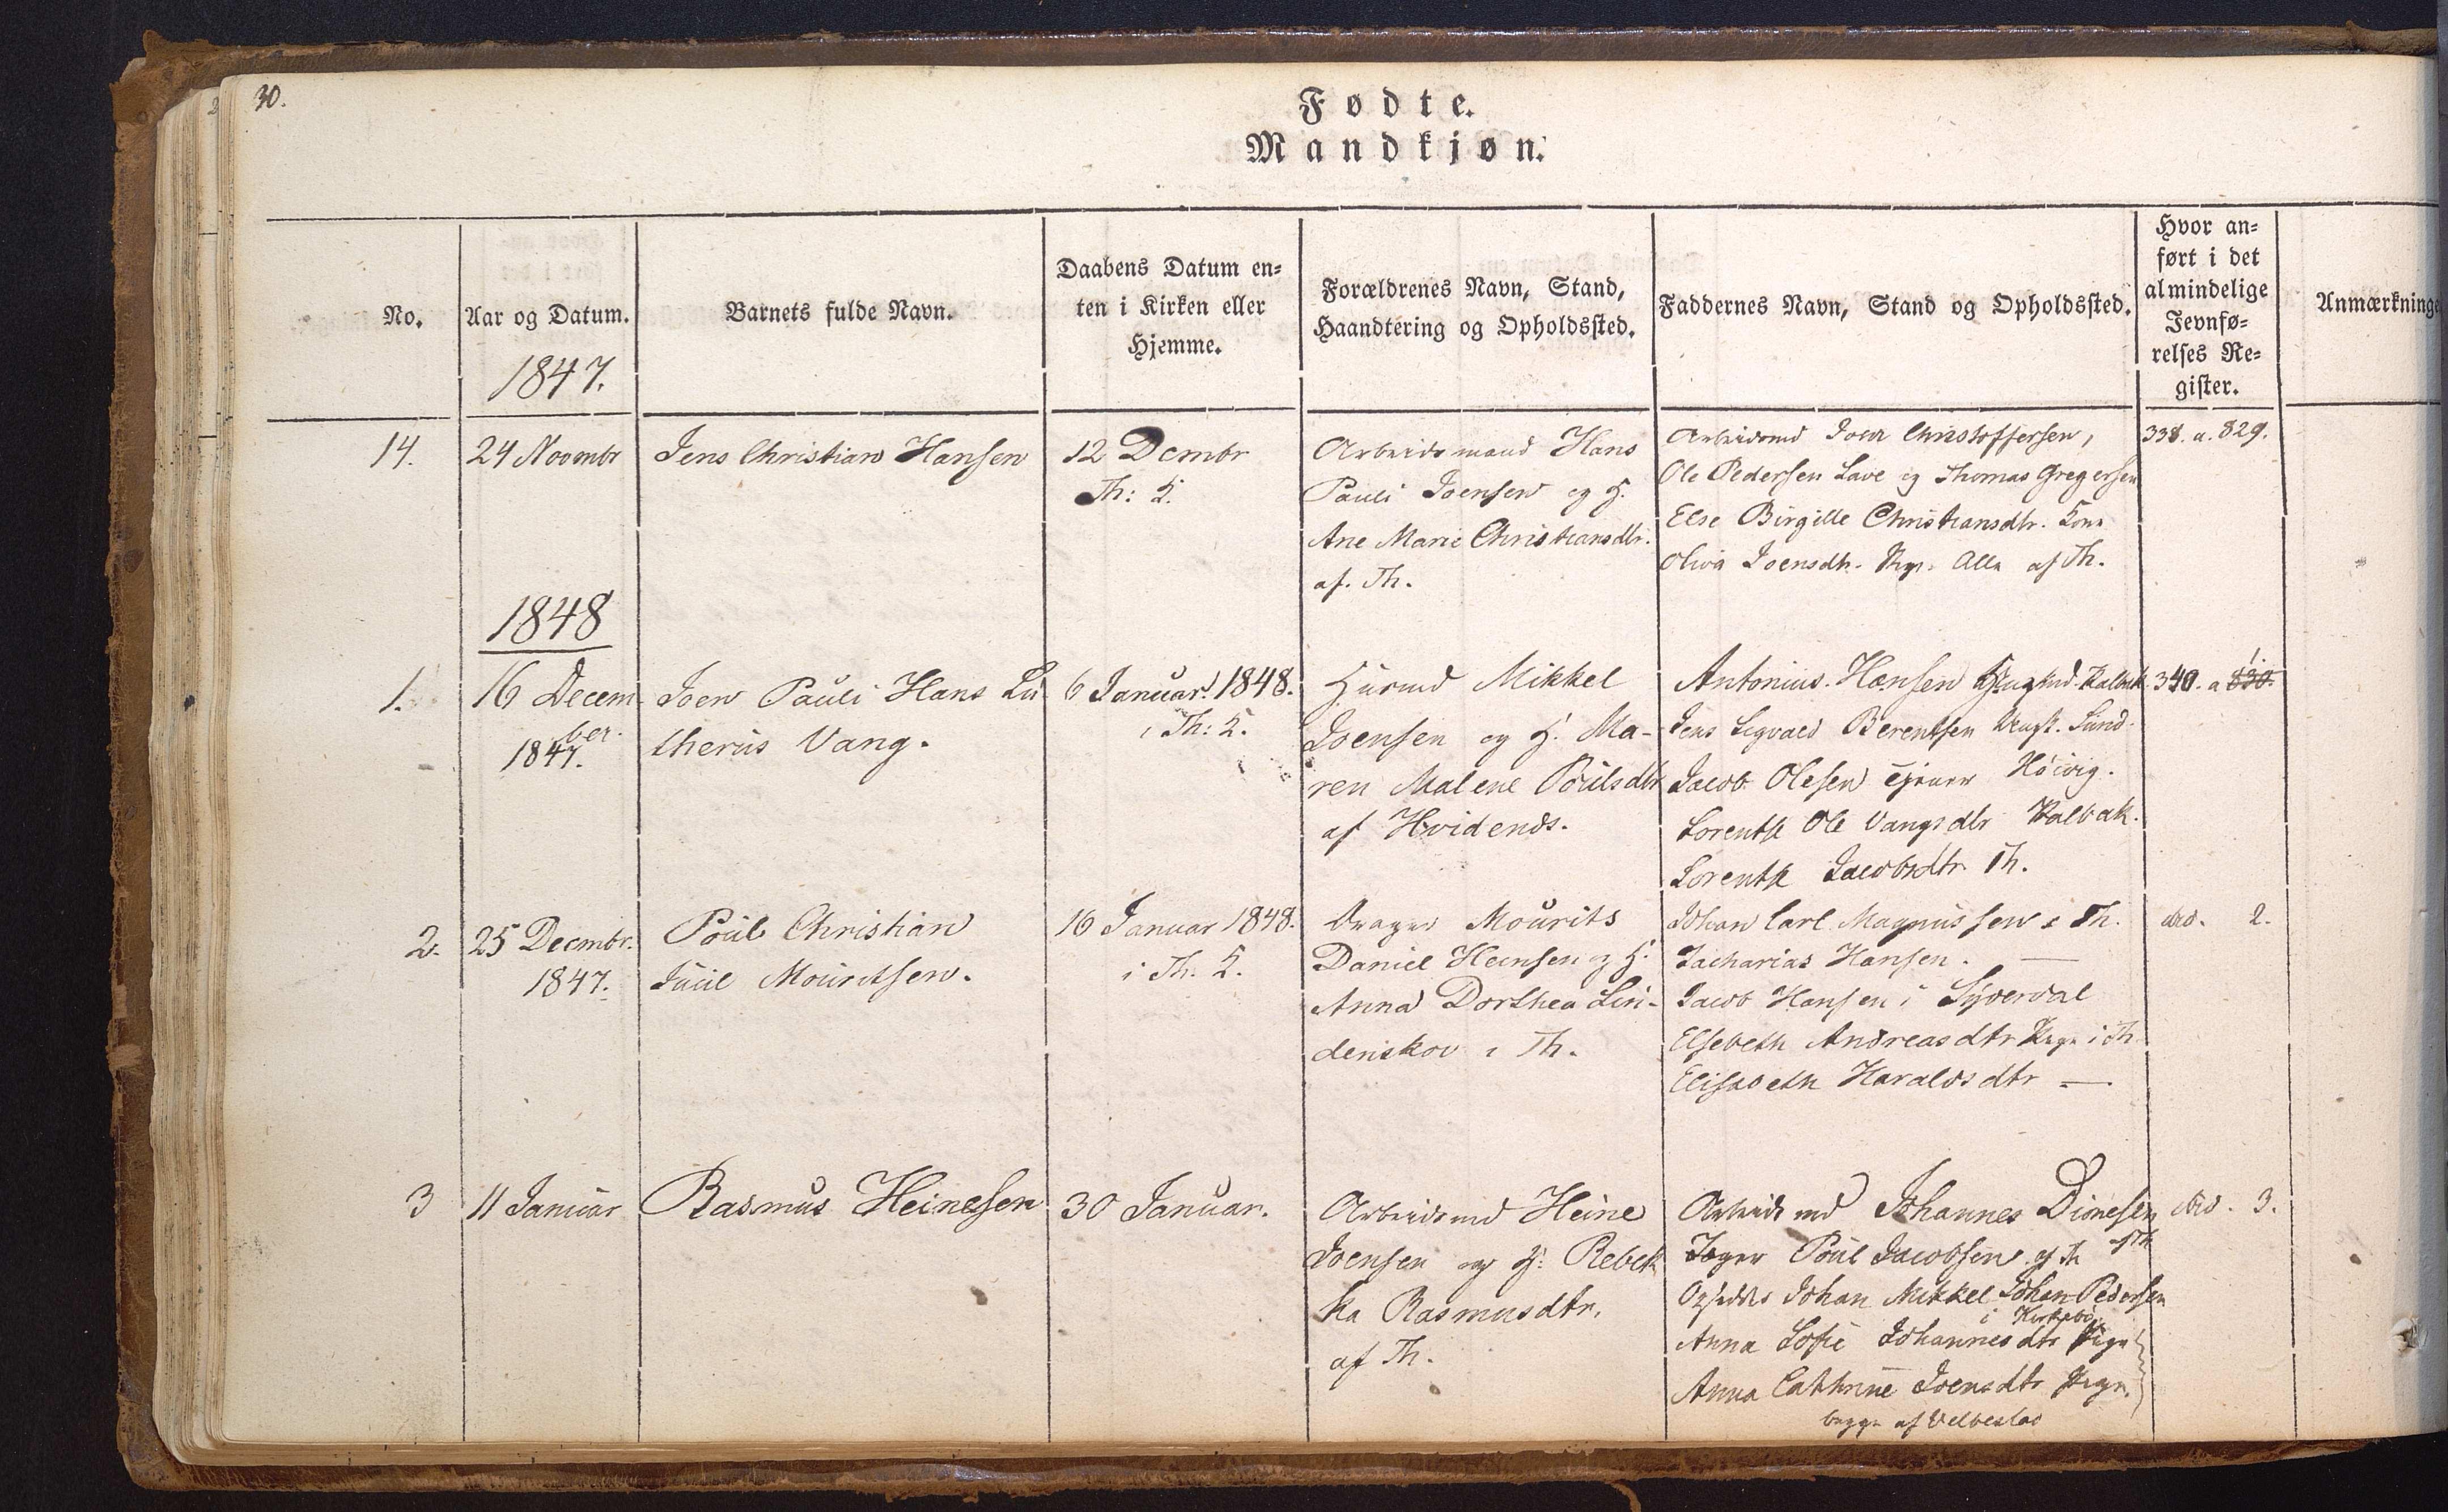 30.
Fødte.
Mandkjøn.
No.
Aar og Datum.
1847.
Barnets fulde Navn.
Daabens Datum en-
ten i Kirken eller
Hjemme.
Forældrenes Navn, Stand,
Haandtering og Opholdssted.
Faddernes Navn, Stand og Opholdssted.
Hvor an-
ført i det
almindelige
Jevnfø-
relses Re-
gister.
Anmærkninge
14.
24 Novmbr
Jens Christian Hansen
12 Dcmbr
Th: K.
Arbeidsmand Hans
Pauli Joensen og H.
Ane Marie Christiansdtr.
af. Th.
Arbeidsmd Joen Christoffersen,
Ole Pedersen Lave og Thomas Gregersen
Else Birgitte Christiansdtr. Kone
Oliva Joensdtr. Pige. Alle af Th.
338. a. 829.
1848
1.
16 Decem-
ber.
1847.
Joen Pauli Hans Lu
therus Vang.
6 Januar 1848.
i Th: K.
Huusmd Mikkel
Joensen og H. Ma-
ren Malene Poulsdtr
af Hvidenæs.
Antonius Hansen Kalbak.
Jens Sigvald Berentsen Sund.
Jacob Olesen Höivig.
Lorentse Ole Vangsdtr Kalbak.
Lorentse Jacobsdtr Th.
340. a 830. 1.
2.
25 Decmbr.
1847.
Poul Christian
Juul Mouritsen.
16 Januar 1848.
i Th. K.
Mourits
Daniel Heinsen og H.
Anna Dorthea Lin-
denskov i Th.
Johan Carl Magnussen i Th.
Zacharias Hansen. —
Jacob Hansen i Syderdal
Elsebeth Andreasdtr Pige i Th
Elisabeth Haraldsdtr —
do. 2.
3
11 Januar
Rasmus Heinesen
30 Januar.
Arbeidsmd Heine
Joensen og H. Rebek
ka Rasmusdtr.
af Th.
Arbeidsmd Johannes Dionesen
af Th
Poul Jacobsen af Th
Johan Mikkel Johan Pedersen
i Kirkebö
Anna Sofie Johannesdtr Pige
Anna Cathrine Joensdtr Pige.
begge af Velbestad
do. 3.